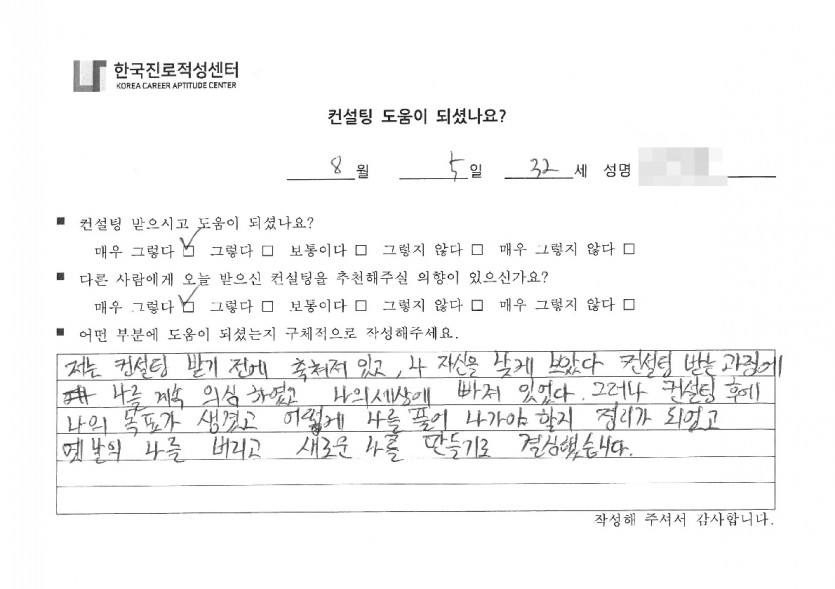 한국진로적성센터
KOREA CAREER APTITUDE CENTER
컨설팅 도움이 되셨나요?
8월 5일 32세 성명
■ 컨설팅 받으시고 도움이 되셨나요?
매우 그렇다 ☑ 그렇다 □ 보통이다 □ 그렇지 않다 □ 매우 그렇지 않다 □
■ 다른 사람에게 오늘 받으신 컨설팅을 추천해주실 의향이 있으신가요?
매우 그렇다 ☑ 그렇다 □ 보통이다 □ 그렇지 않다 □ 매우 그렇지 않다 □
■ 어떤 부분에 도움이 되셨는지 구체적으로 작성해주세요.
저는 컨설팅 받기 전에 축쳐져 있고, 나 자신을 낮게 보았다 컨설팅 받는 과정에
나를 계속 의심 하였고 나의세상에 빠져 있었다. 그러나 컨설팅 후에
나의 목표가 생겼고 어떻게 나를 풀어 나가야 할지 정리가 되었고
옛날의 나를 버리고 새로운 나를 만들기로 결심했습니다.
작성해 주셔서 감사합니다.